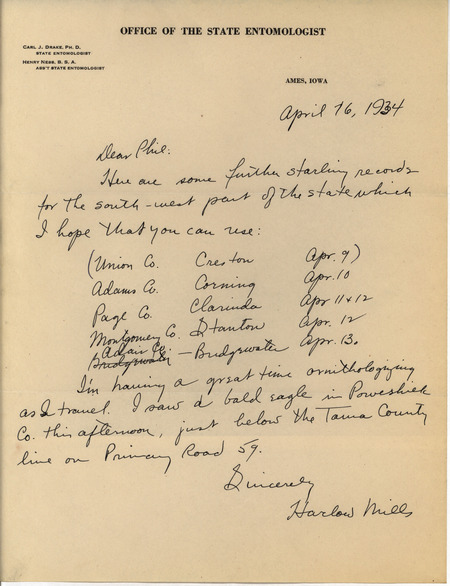 OFFICE OF THE STATE ENTOMOLOGIST
CARL J. DRAKE, PH. D.
STATE ENTOMOLOGIST
HENRY NESS, B. S. A.
ASS'T STATE ENTOMOLOGIST
AMES, IOWA
April 16, 1934
Dear Phil:
Here are some further starling records
for the south-west part of the state which
I hope that you can use:
(Union Co. Creston Apr. 9)
Adams Co. Corning Apr. 10
Page Co. Clarinda Apr 11+12
Montgomery Co. Stanton Apr. 12
Adair Co.
Bridgewater - Bridgewater Apr. 13.
I'm having a great time ornithologizing
as I travel. I saw a bald eagle in Poweshiek
Co. this afternoon, just below the Tama County
line on Primary Road 59.
Sincerely
Harlow Mills